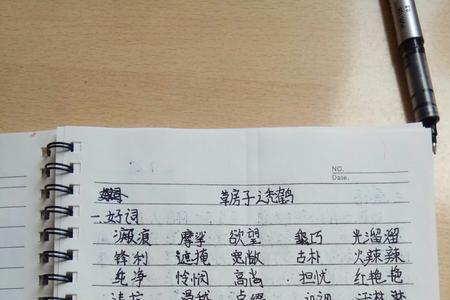 NO.
Date.
草房子之秃鹤
一.好词
瀑痕 摩挲 欲望 技巧 光溜溜
锋利 遮掩 宽敞 古朴 火辣辣
纯净 怜悯 高尚 担忧 红艳艳